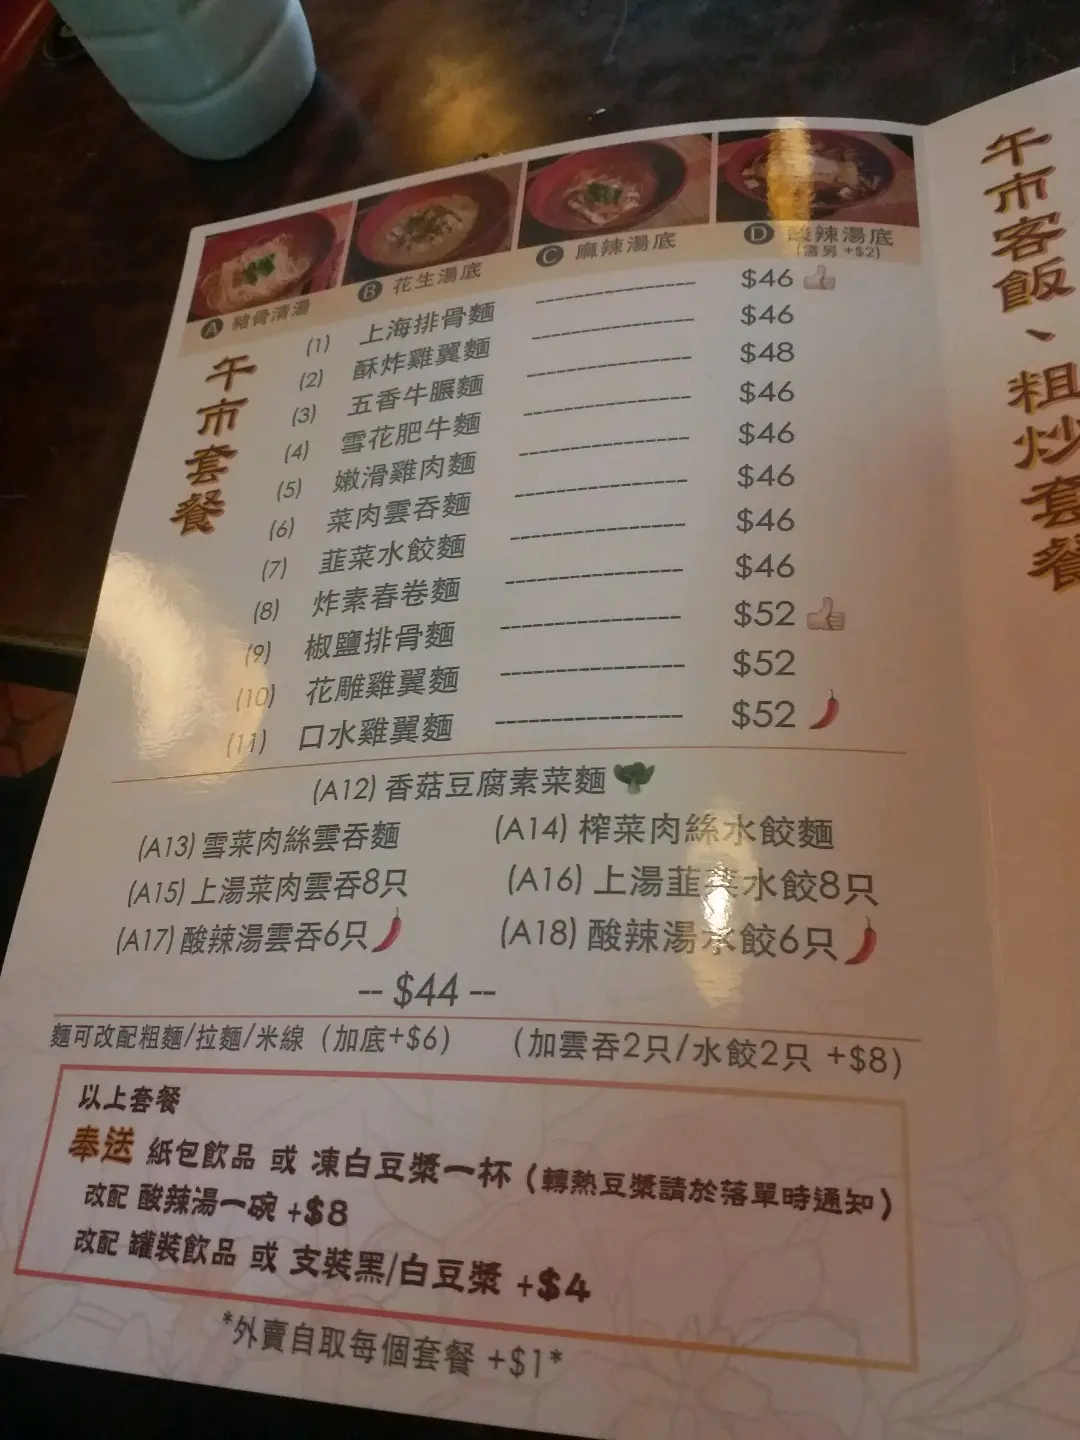 A 豬骨清湯
B 花生湯底
C 麻辣湯底
D 酸辣湯底
(需另+$2)
午市套餐
(1) 上海排骨麵 ---------------- $46
(2) 酥炸雞翼麵 ---------------- $46
(3) 五香牛𦟌麵 ---------------- $48
(4) 雪花肥牛麵 ---------------- $46
(5) 嫩滑雞肉麵 ---------------- $46
(6) 菜肉雲吞麵 ---------------- $46
(7) 韮菜水餃麵 ---------------- $46
(8) 炸素春卷麵 ---------------- $46
(9) 椒鹽排骨麵 ---------------- $52
(10) 花雕雞翼麵 ---------------- $52
(11) 口水雞翼麵 ---------------- $52
(A12) 香菇豆腐素菜麵
(A13) 雪菜肉絲雲吞麵 (A14) 榨菜肉絲水餃麵
(A15) 上湯菜肉雲吞8只 (A16) 上湯韮菜水餃8只
(A17) 酸辣湯雲吞6只 (A18) 酸辣湯水餃6只
-- $44 --
麵可改配粗麵/拉麵/米線 (加底+$6) (加雲吞2只/水餃2只 +$8)
以上套餐
奉送 紙包飲品 或 凍白豆漿一杯 (轉熱豆漿請於落單時通知)
改配 酸辣湯一碗 +$8
改配 罐裝飲品 或 支裝黑/白豆漿 +$4
*外賣自取每個套餐 +$1*
午市客飯、粗炒套餐